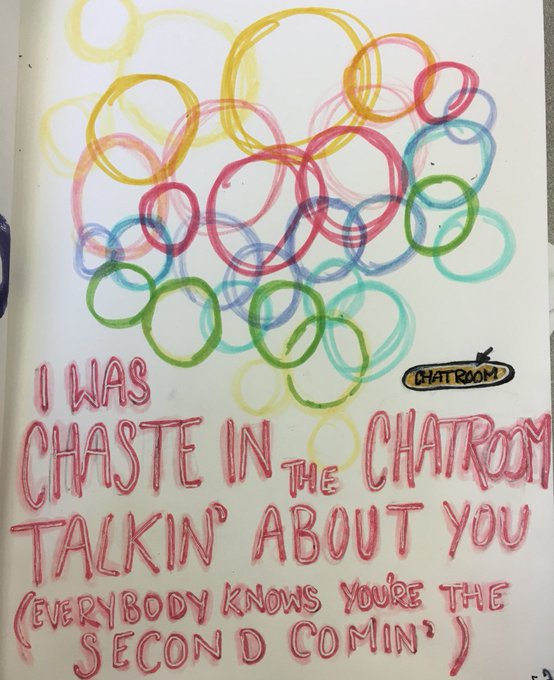 CHATROOM
I WAS
CHASTE IN THE CHATROOM
TALKIN' ABOUT YOU
(EVERYBODY KNOWS YOU'RE THE
SECOND COMIN')